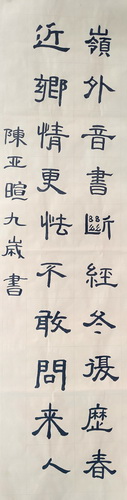 嶺外音書斷經冬復歷春
近鄉情更怯不敢問来人
陳亚暄九歲書